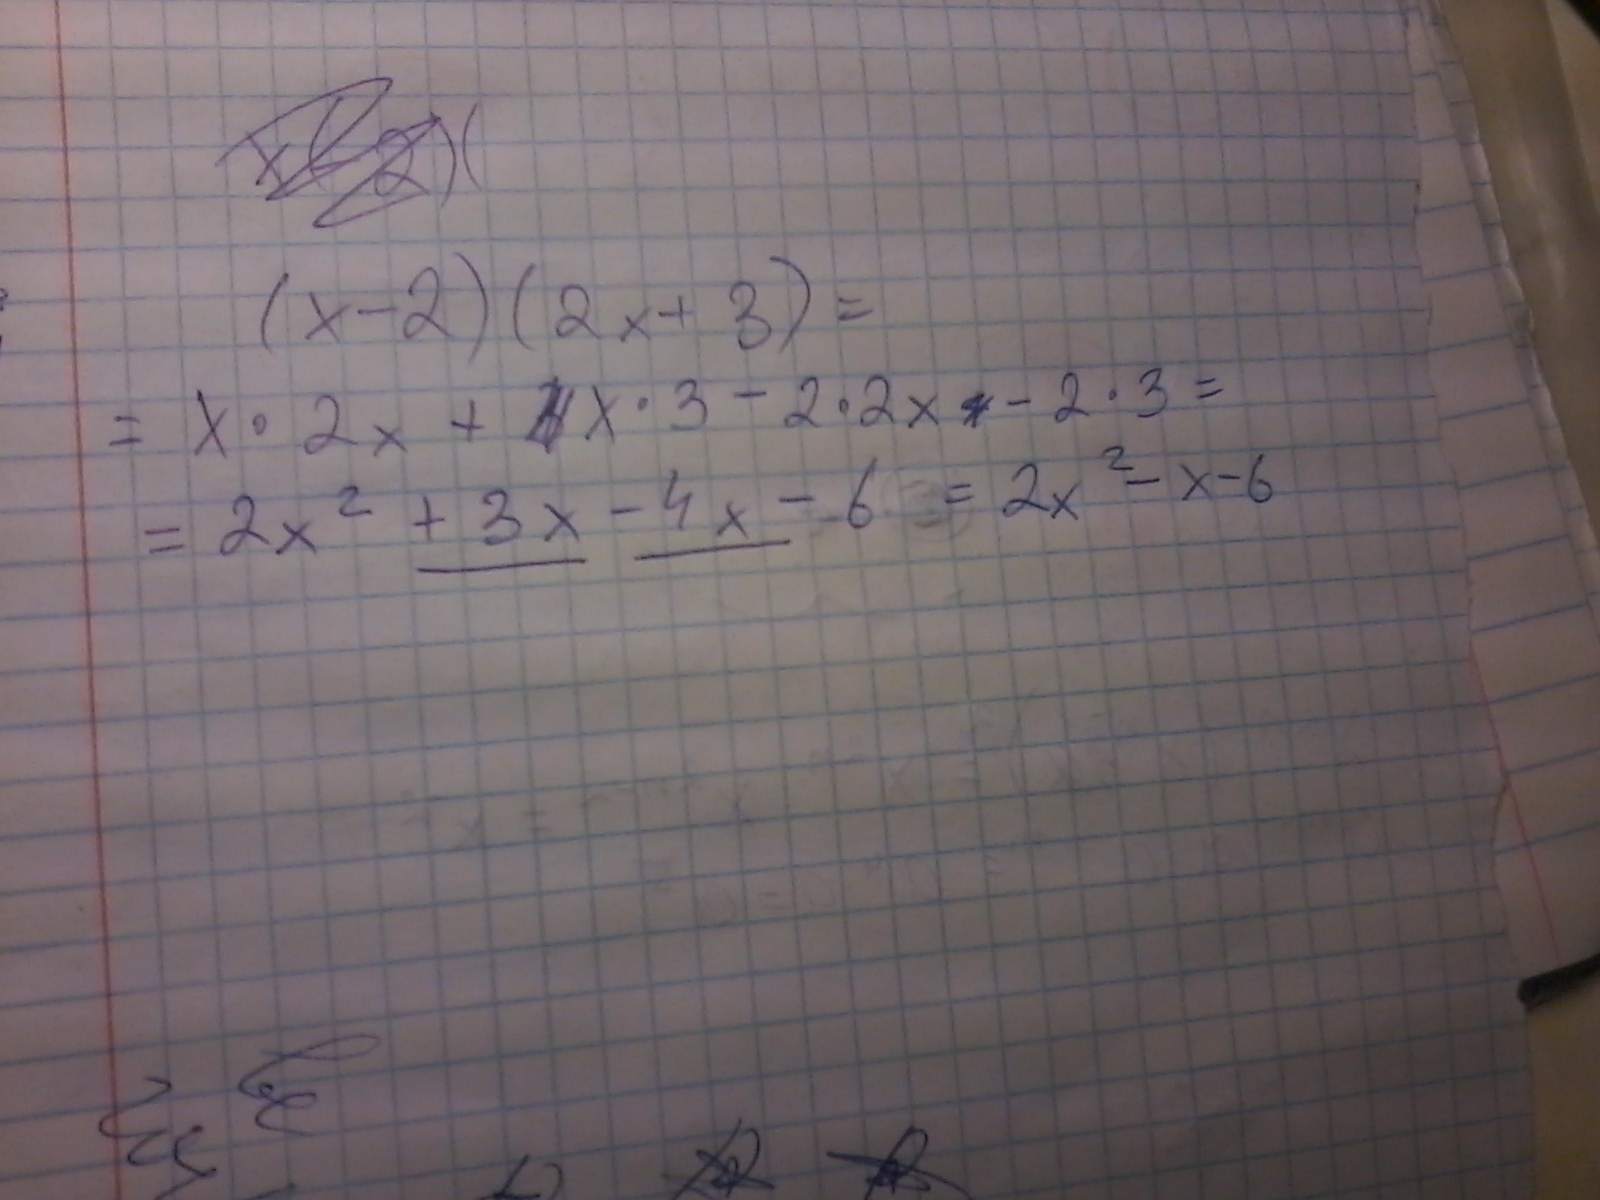 (x-2)(2x+3)=
= x·2x + x·3 - 2·2x - 2·3 =
= 2x² + 3x - 4x - 6 = 2x² - x - 6